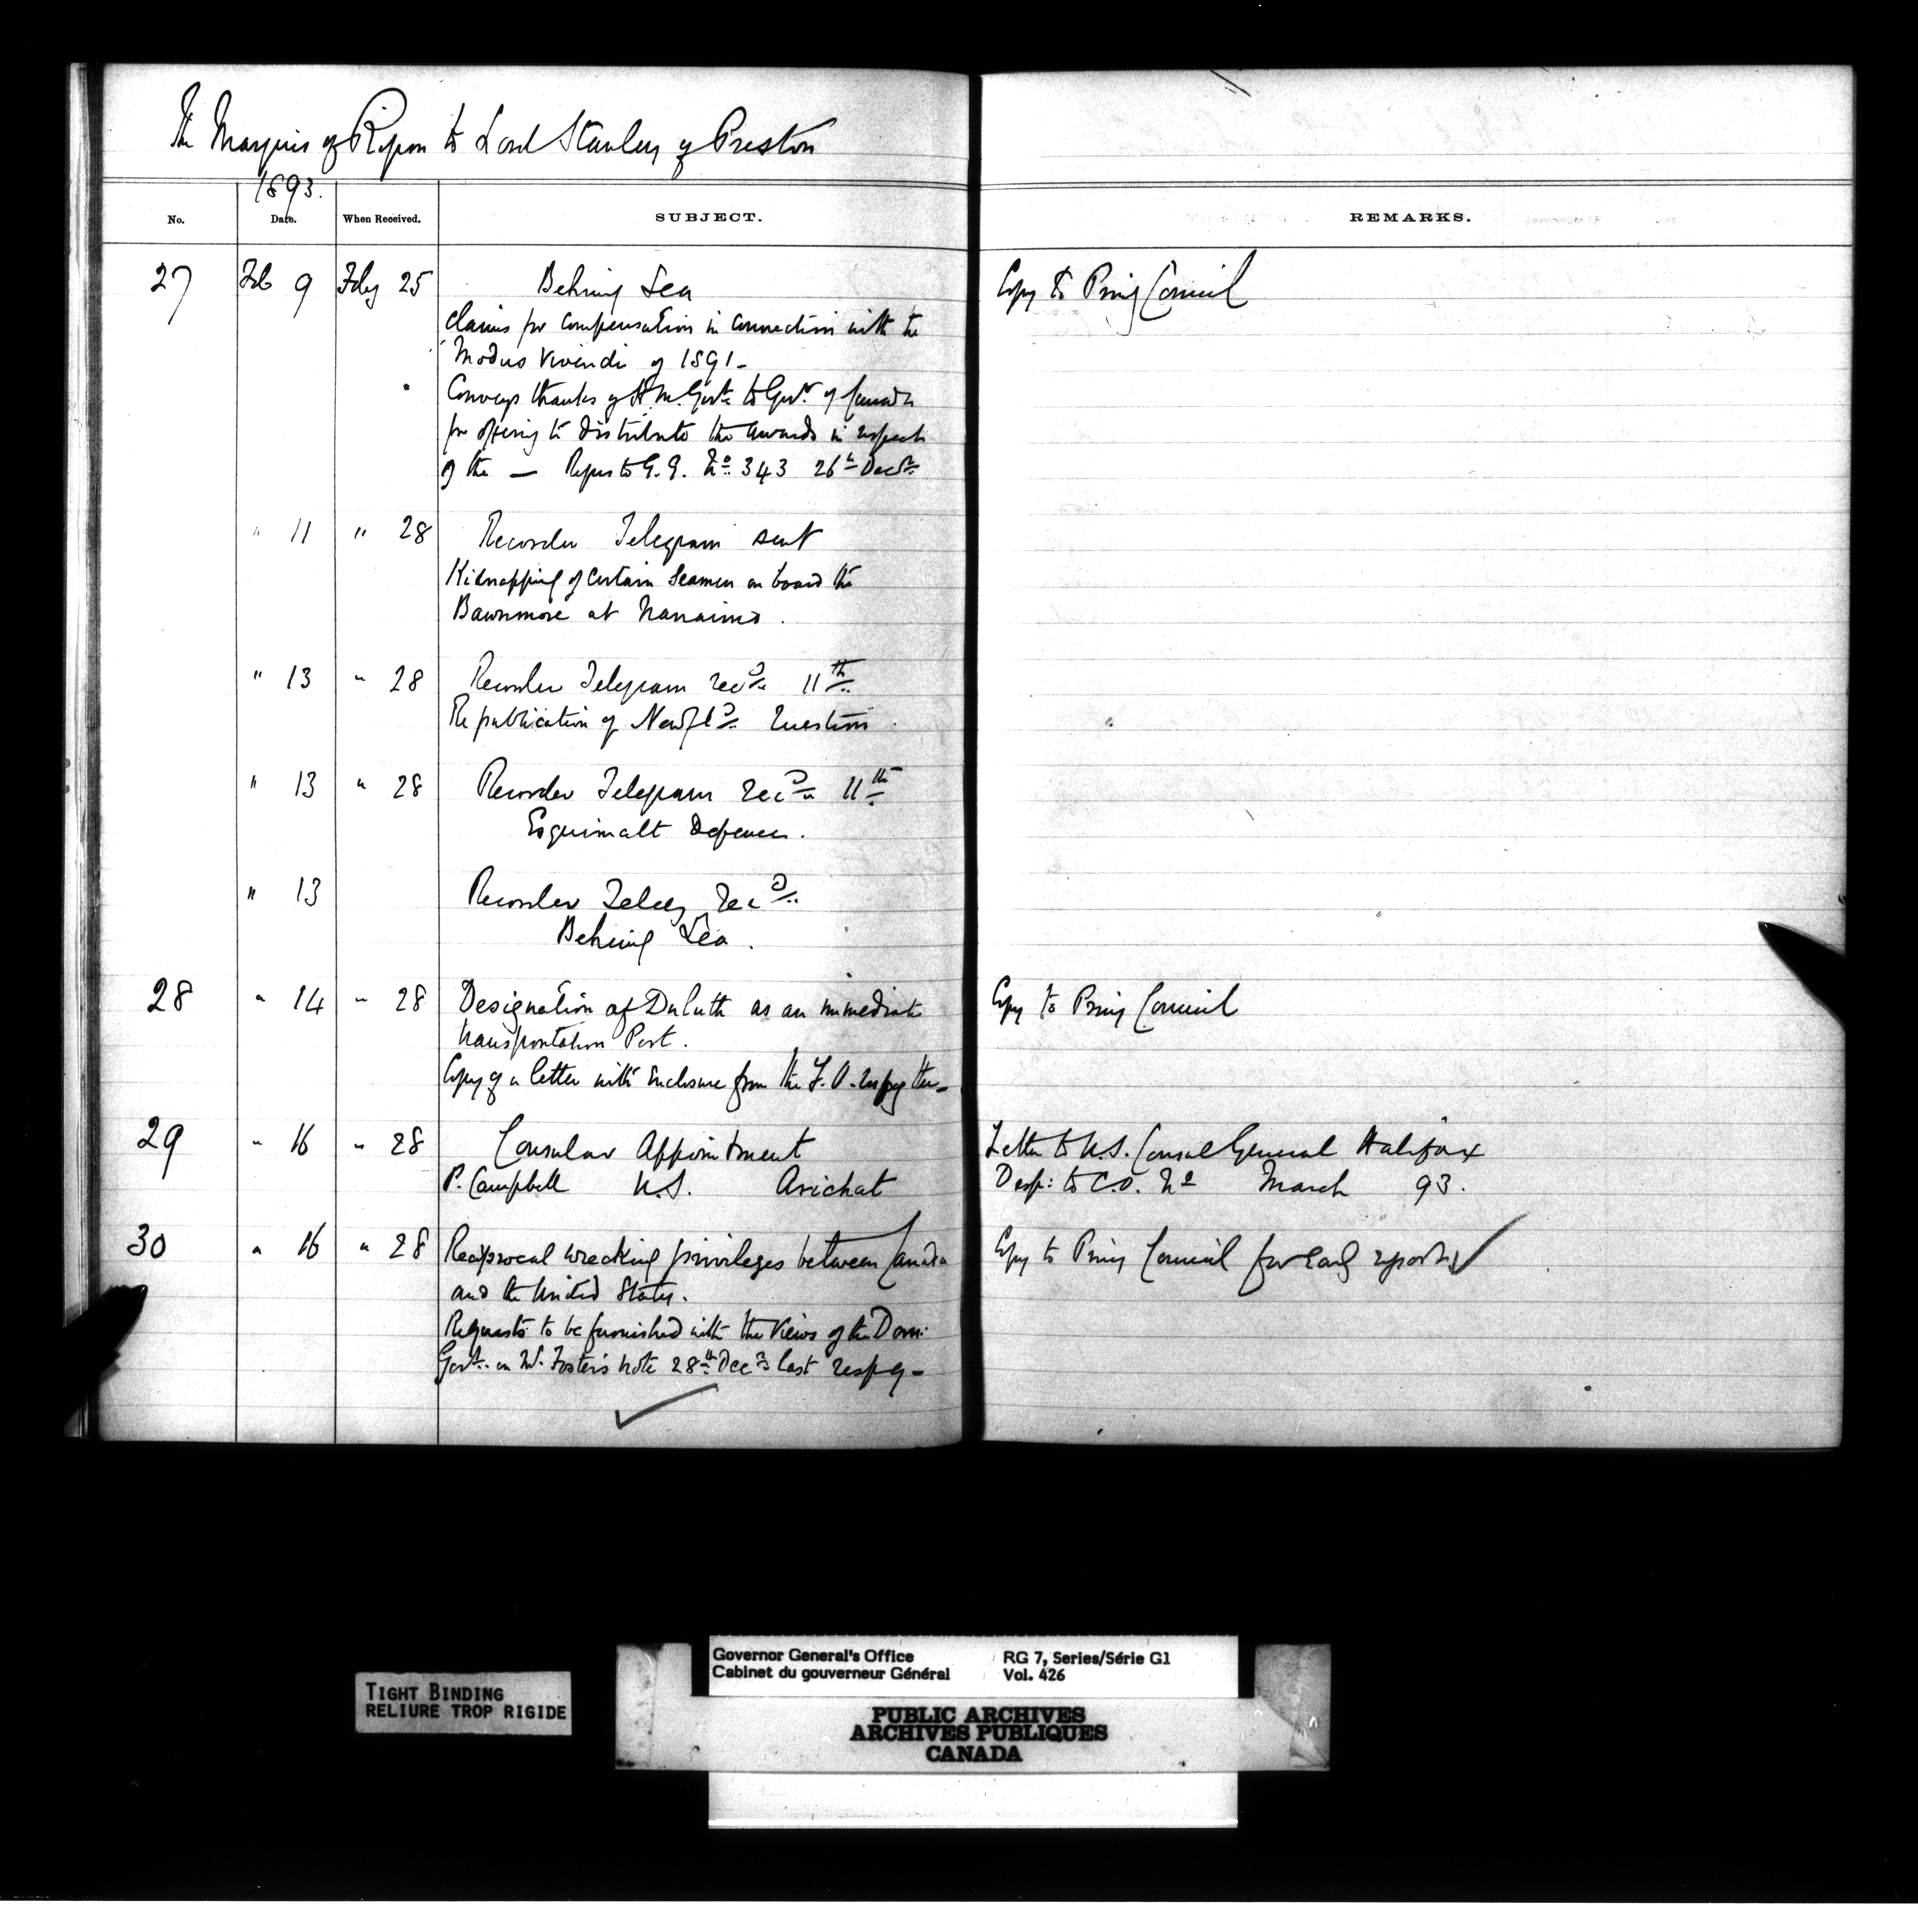 The Marquis of Ripon to Lord Stanley of Preston
1893.
No. Date. When Received. SUBJECT. REMARKS.
27 Feb 9 Feby 25 Behring Sea Copy to Privy Council
Claims for compensation in connection with the
Modus Vivendi of 1891 -
Conveys thanks of H.M. Govt. to Govt. of Canada
for offering to distribute the awards in respect
of the — Refers to G.G. No. 343 26th Decr.
" 11 " 28 Recorder Telegram sent
Kidnapping of certain Seamen on board the
Bawnmore at Nanaimo.
" 13 " 28 Recorder Telegram recd. 11th
Re publication of Newfld. Question.
" 13 " 28 Recorder Telegram Recd. 11th
Esquimalt Defences.
" 13 Recorder Teleg Recd.
Behring Sea.
28 " 14 " 28 Designation of Duluth as an immediate Copy to Privy Council
transportation Port.
Copy of a letter with enclosure from the F.O. respg the -
29 " 16 " 28 Consular Appointment Letter to U.S. Consul General Halifax
P. Campbell U.S. Arichat Desp: to C.O. No March 93.
30 " 16 " 28 Reciprocal wrecking privileges between Canada Copy to Privy Council for early report
and the United States.
Requests to be furnished with the views of the Dom:
Govt. on Mr. Foster's note 28th Decr. last respg -
Governor General's Office RG 7, Series/Série G1
Cabinet du gouverneur Général Vol. 426
TIGHT BINDING
RELIURE TROP RIGIDE
PUBLIC ARCHIVES
ARCHIVES PUBLIQUES
CANADA